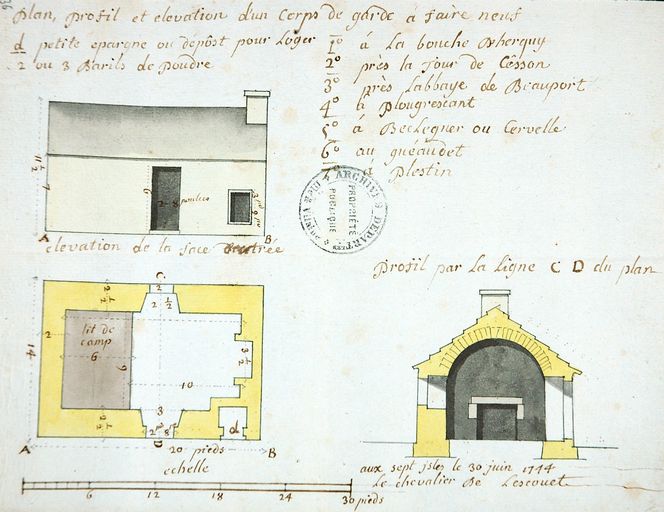 Plan, profil et elevation d'un Corps de garde à faire neuf
d petite epargne ou depôst pour Loger
2 ou 3 Barils de Poudre
1° à La bouche Dherquy
2° près la Tour de Cesson
3° près Labbaye de Beauport
4° à Plougrescant
5° à Beclegner ou Cervelle
6° au guéaudet
7° à Plestin
ARCHIVES DEPARTEM
PROPRIÉTÉ
PUBLIQUE
elevation de la face d'entrée
A B
Profil par La Ligne C D du plan
lit de
camp
6
10
d
C
D
A 20 pieds B
echelle
6 12 18 24 30 pieds
aux sept isles le 30 juin 1744
Le chevalier De Lescouet